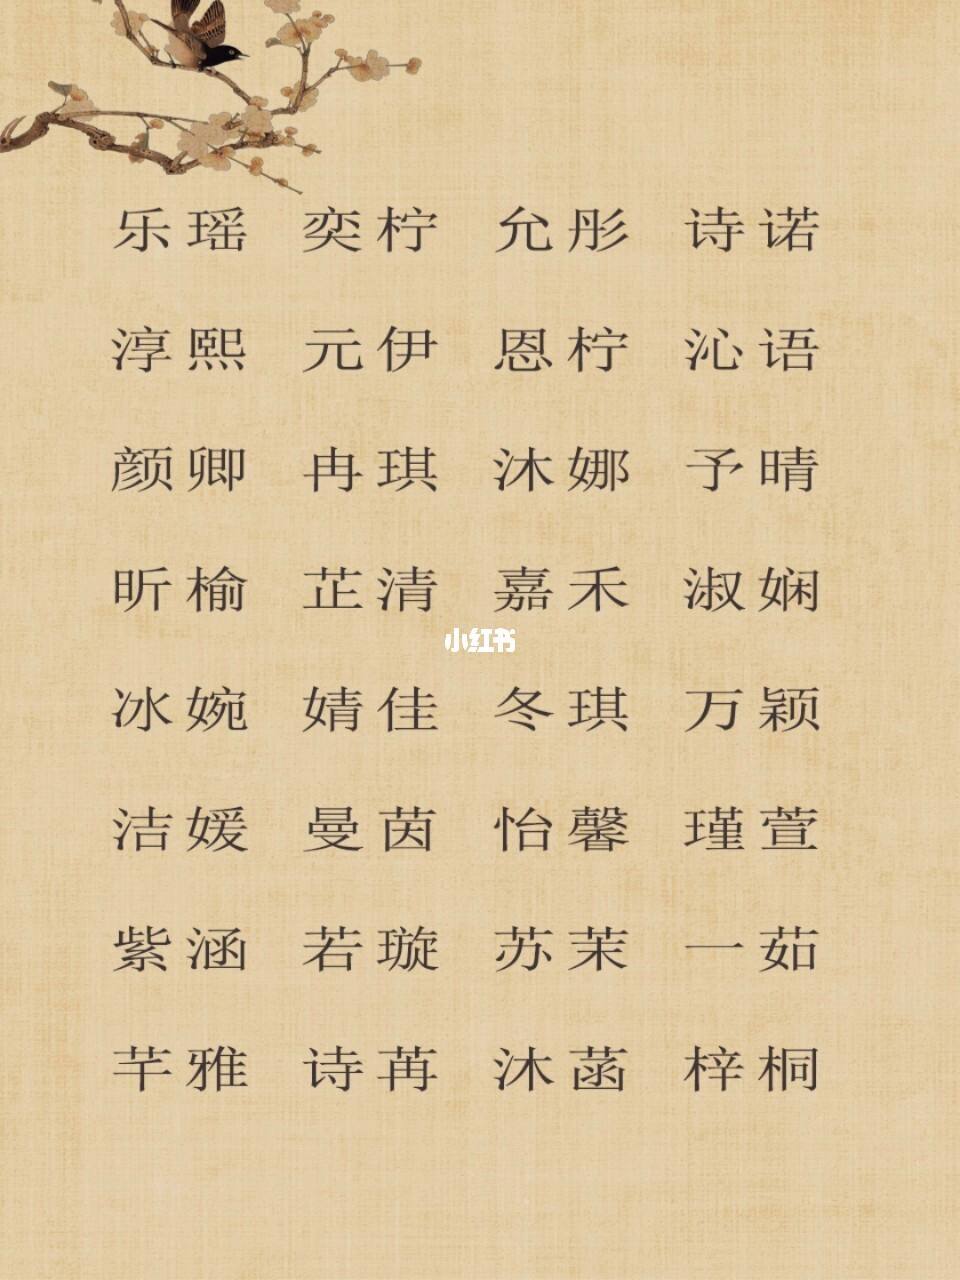 乐瑶 奕柠 允彤 诗诺
淳熙 元伊 恩柠 沁语
颜卿 冉琪 沐娜 予晴
昕榆 芷清 嘉禾 淑娴
小红书
冰婉 婧佳 冬琪 万颖
洁媛 曼茵 怡馨 瑾萱
紫涵 若璇 苏茉 一茹
芊雅 诗苒 沐菡 梓桐